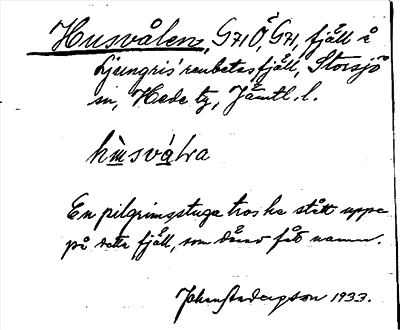 Husvålen, G71Ö, G71, fjäll å
Ljungris' renbetesfjäll, Storsjö
sn, Hede tg, Jämtl. l.
hùsvá̱lra
En pilgrimsstuga tros ha stått uppe
på detta fjäll, som därav fåt namn.
1933.